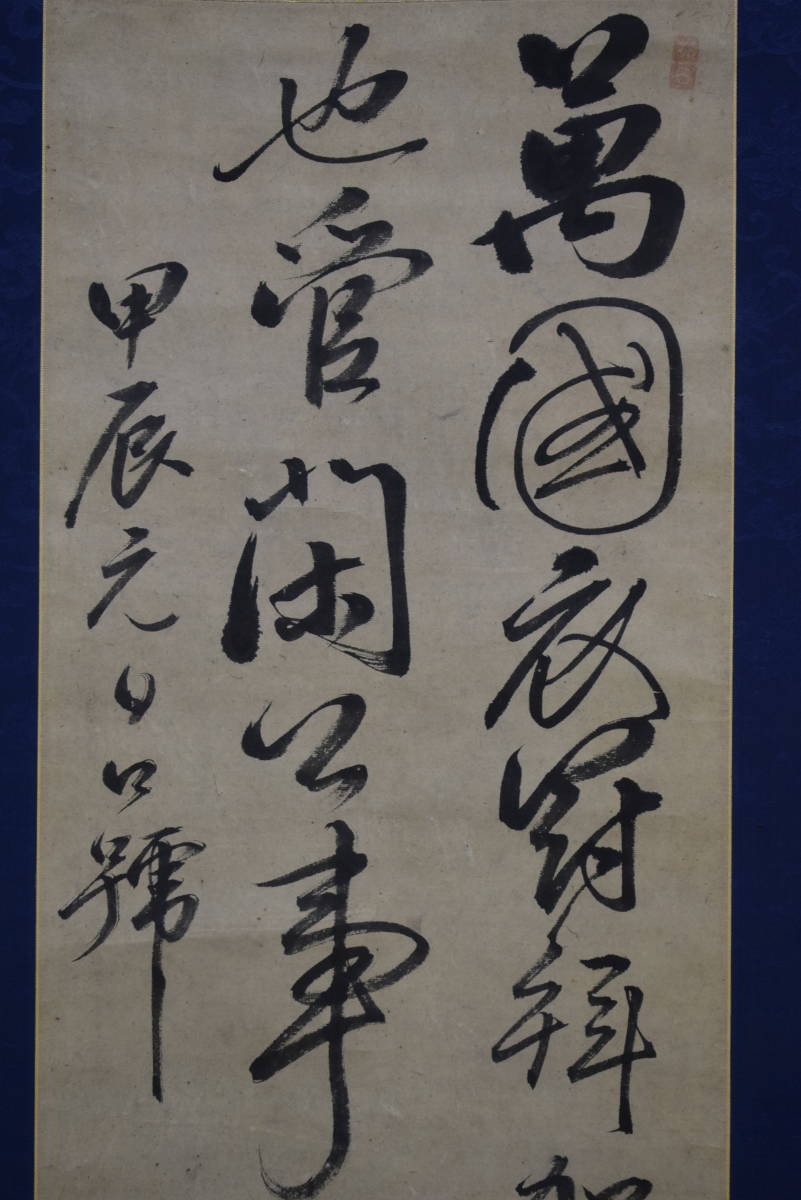 萬國衣冠拜
也管閑公事
甲辰元日口號